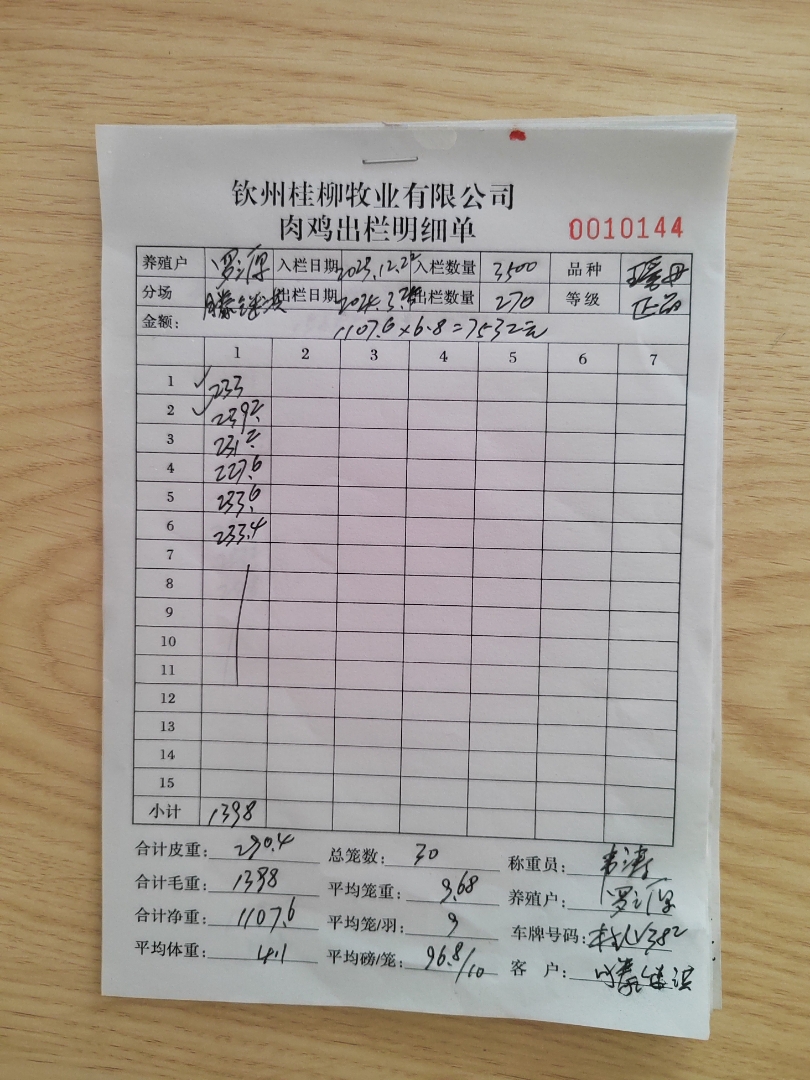 钦州桂柳牧业有限公司
肉鸡出栏明细单 0010144
养殖户 罗源 入栏日期 2023.12.22 入栏数量 3500 品种
分场 出栏日期 2024.3. 出栏数量 270 等级 正品
金额: 1107.6×6.8=7532元
1 2 3 4 5 6 7
1 233
2 239.2
3 231.2
4 227.6
5 233.6
6 233.4
7
8
9
10
11
12
13
14
15
小计 1398
合计皮重: 290.4 总笼数: 30 称重员: 韦涛
合计毛重: 1398 平均笼重: 9.68 养殖户: 罗源
合计净重: 1107.6 平均笼/羽: 9 车牌号码:
平均体重: 4.1 平均磅/笼: 96.8/10 客 户: